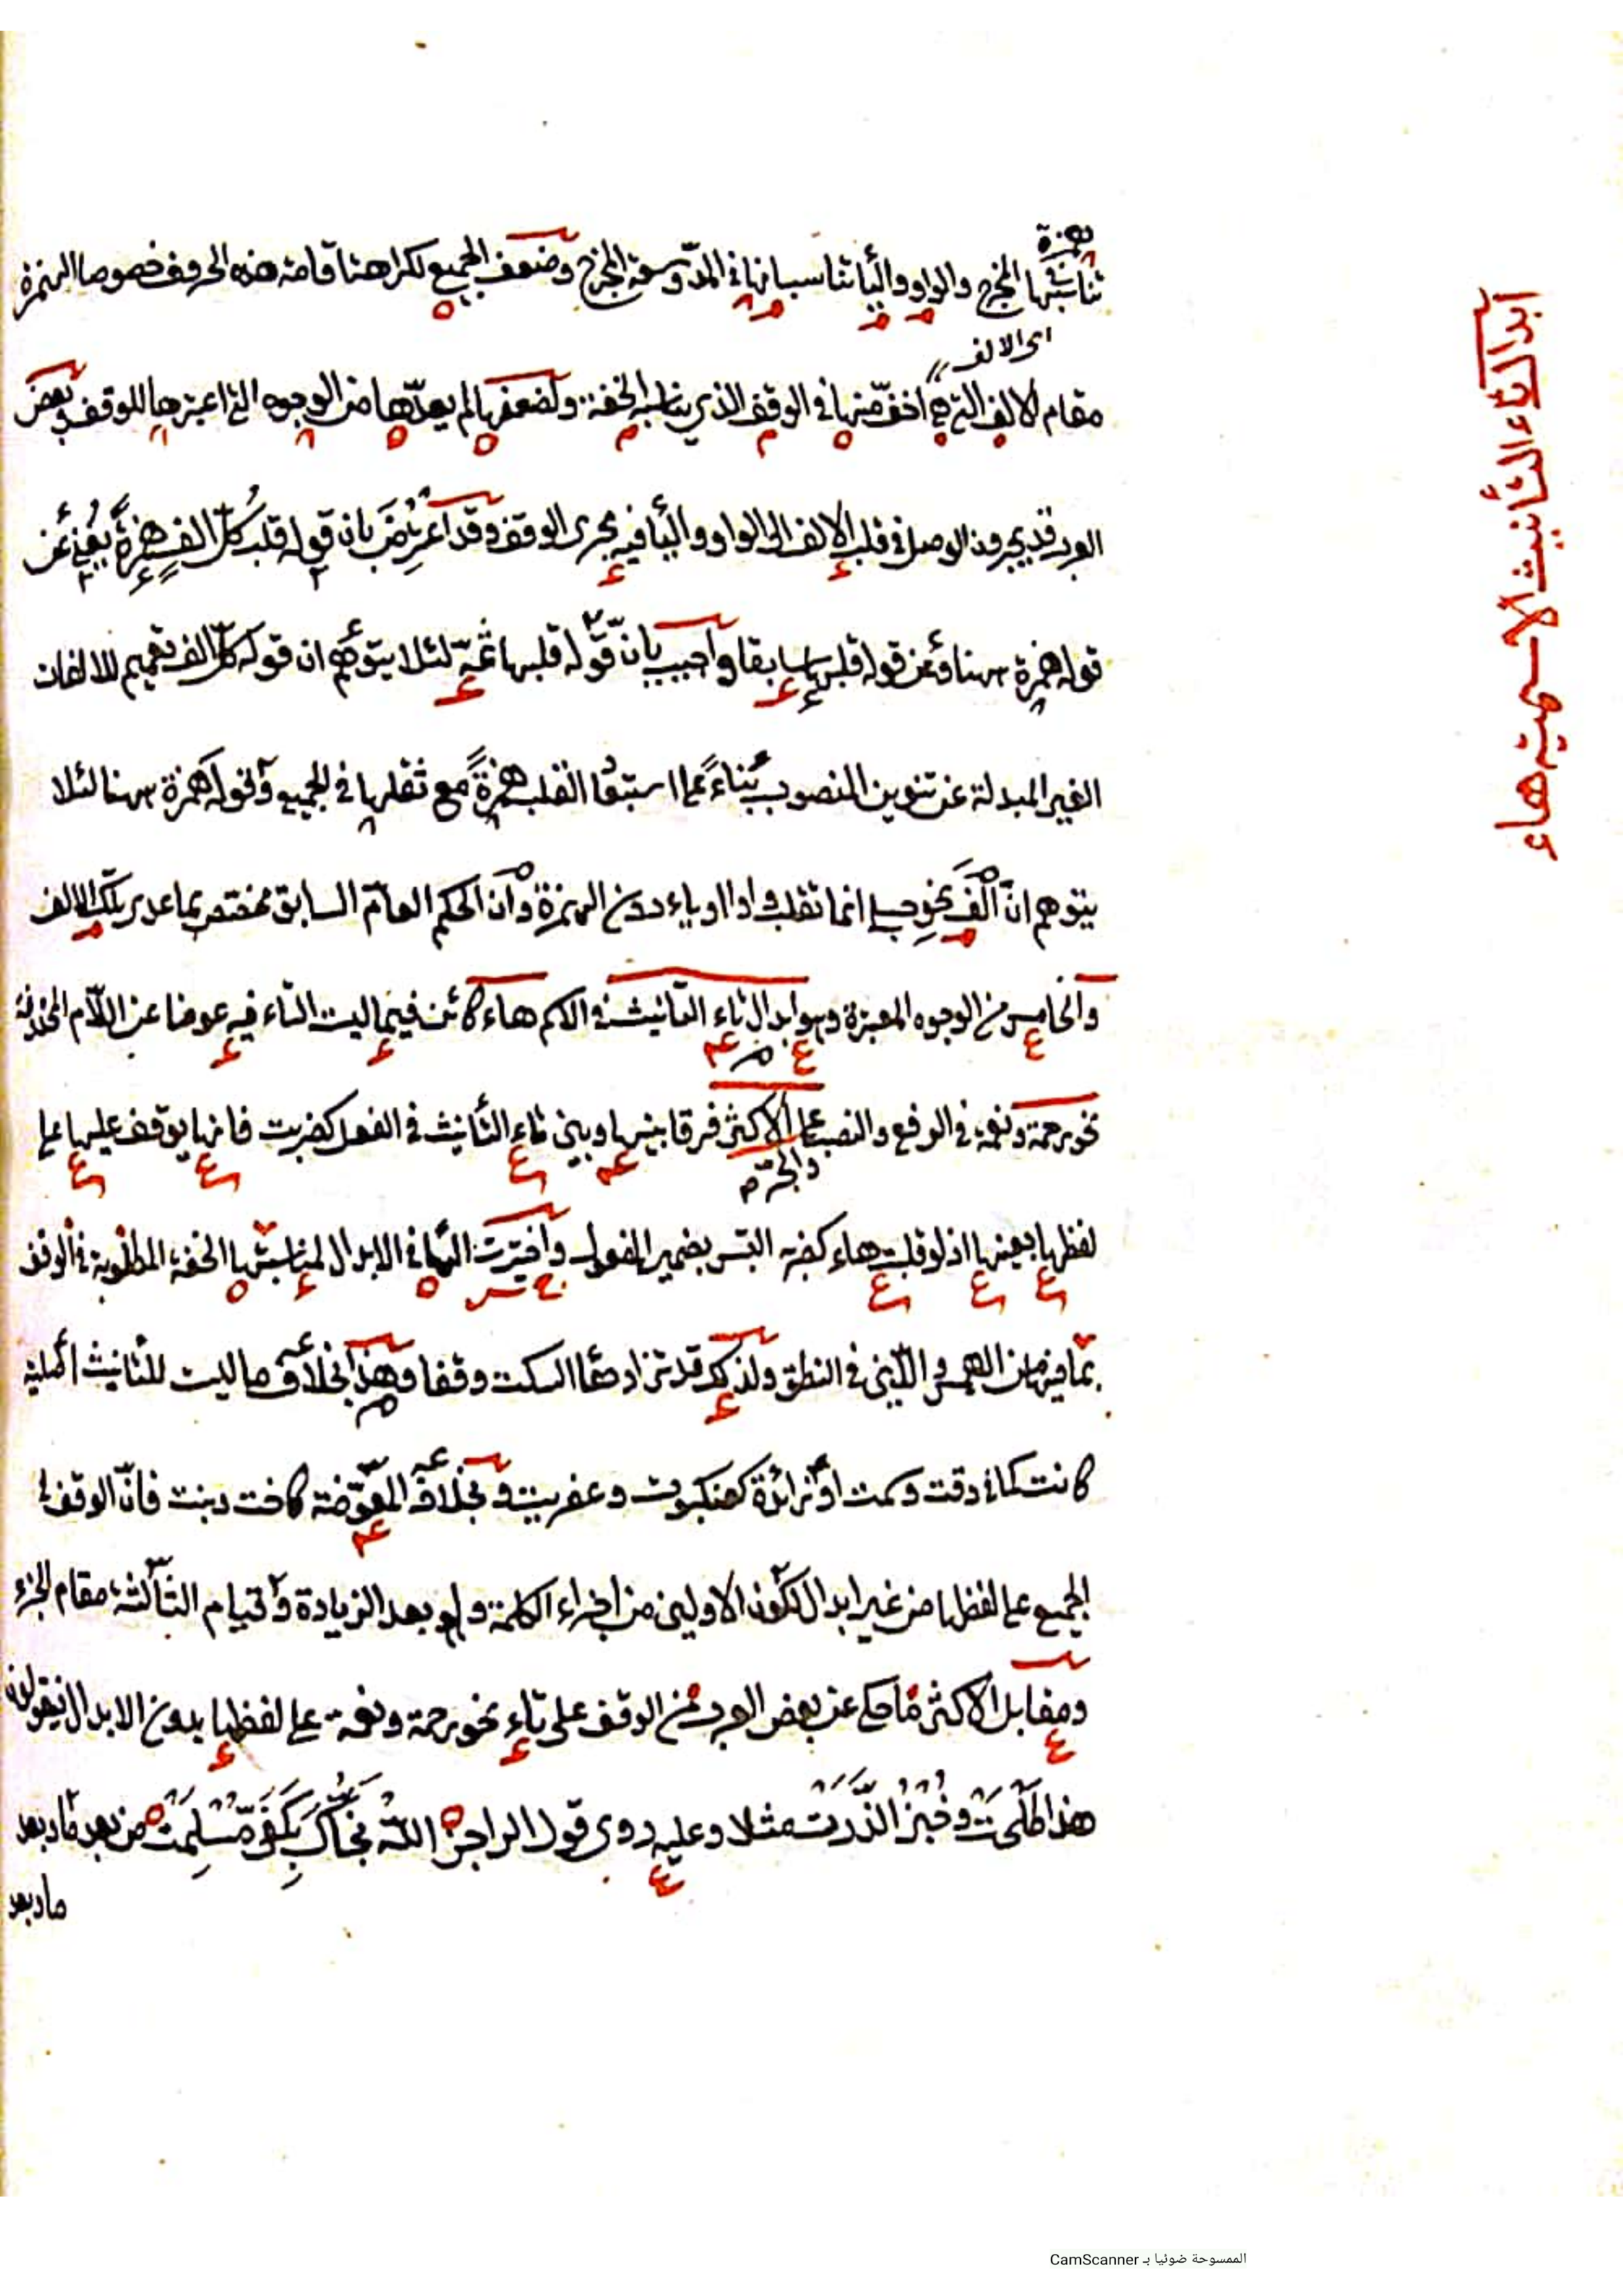 همزة
تناسبها المخرج والواو والياء تناسبانها في المدّ وسعة المخرج وضعف الجميع لكراهتنا قامة هذه الحروف خصوصا الهمزة
اى الالف
مقام الالف التي هي اخفّ منها في الوقف الذي يناسبه الخفة ولضعفها لم يعدّها من الوجوه التي اعتبرها للوقف وبعض
العرب قد يجرون الوصل في قلب الالف الى الواو والياء فيه مجرى الوقف وقد اعْتُرِضَ بان قوله قلب كلّ الف همزةً يغنى عن
قوله همزة ههنا وعن قوله قلبها سابقا واجيب بانّ قوله قلبها ثمّة لئلا يتوهّم ان قوله كلّ الف تعميم للالفات
الغير المبدلة عن تنوين المنصوب بناءً على استبعاد القلب همزةً مع ثقلها في الجميع وقوله همزة ههنا لئلا
يتوهم انّ الف نحو حبلى انما تقلب واوا او ياء دون الهمزة وان الحكم العامّ السابق مختص بما عدى تلك الالف
والخامس من الوجوه المعتبرة وهو ابدال تاء التأنيث في الاسم هاء كائن فيما ليت التاء فيه عوضا عن اللّام المحذوفة
نحو رحمة ونعمة في الرفع والنصب على الاكثر فرقا بينها وبين تاء التأنيث في الفعل كضربت فانها يوقف عليها على
والجر م
لفظها بعينها اذ لو قلبت هاء كضربه التبس بضمير المفعول واختيرت الهاء في الابدال لمناسبتها الخفة المطلوبة في الوقف
بما فيها من الهمس واللّين في النطق ولذلك قد تزاد هاء السكت وقفا وهذا بخلاف ما ليت للتأنيث اصلية
كانت كتاء دقت وكمت او زائدة كعنكبوت وعفريت وبخلاف المعوّضة كاخت وبنت فانّ الوقف في
الجميع على لفظها من غير ابدال لكون الاوليين من اجزاء الكلمة ولو بعد الزيادة وقيام الثالثة مقام الجزء
ومقابل الاكثر ما حكى عن بعض العرب من الوقف على تاء نحو رحمة ونعمة على لفظها بدون الابدال فيقولون
هذا طَلْحَتْ وخُبْزُ الذُّرَتْ مثلا وعليه روى قول الراجز اللّهُ نَجَّاكَ بِكَفَّى مَسْلَمَتْ من بعد ما وبعد
ما وبعد
ابدال تاء التأنيث الاسمية هاء
الممسوحة ضوئيا بـ CamScanner